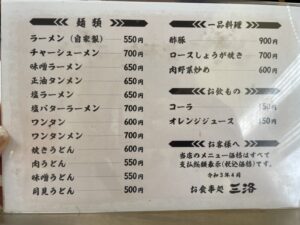 麺類
ラーメン（自家製） 550円
チャーシューメン 700円
味噌ラーメン 650円
正油タンメン 650円
塩ラーメン 650円
塩バターラーメン 700円
ワンタン 600円
ワンタンメン 700円
焼きうどん 600円
肉うどん 550円
味噌うどん 550円
月見うどん 500円
一品料理
酢豚 900円
ロースしょうが焼き 700円
肉野菜炒め 600円
お飲もの
コーラ 150円
オレンジジュース 150円
お客様へ
当店のメニュー価格はすべて
支払総額表示（税込価格）です。
令和3年4月
お食事処 三洛